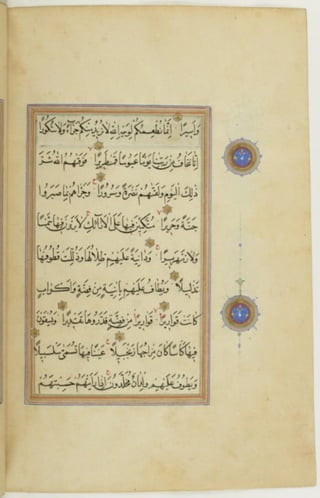 وَاَسِيرًا اِنَّمَا نُطْعِمُكُمْ لِوَجْهِ اللّٰهِ لَا نُرِيدُ مِنْكُمْ جَزَآءً وَلَا شُكُورًا
اِنَّا نَخَافُ مِنْ رَبِّنَا يَوْمًا عَبُوسًا قَمْطَرِيرًا فَوَقٰهُمُ اللّٰهُ شَرَّ
ذٰلِكَ الْيَوْمِ وَلَقّٰهُمْ نَضْرَةً وَسُرُورًا وَجَزٰاهُمْ بِمَا صَبَرُوا
جَنَّةً وَحَرِيرًا مُتَّكِئِينَ فِيهَا عَلَى الْاَرَآئِكِ لَا يَرَوْنَ فِيهَا شَمْسًا
وَلَا زَمْهَرِيرًا وَدَانِيَةً عَلَيْهِمْ ظِلَالُهَا وَذُلِّلَتْ قُطُوفُهَا
تَذْلِيلًا وَيُطَافُ عَلَيْهِمْ بِاٰنِيَةٍ مِنْ فِضَّةٍ وَاَكْوَابٍ
كَانَتْ قَوَارِيرَا قَوَارِيرَا مِنْ فِضَّةٍ قَدَّرُوهَا تَقْدِيرًا وَيُسْقَوْنَ
فِيهَا كَاْسًا كَانَ مِزَاجُهَا زَنْجَبِيلًا عَيْنًا فِيهَا تُسَمّٰى سَلْسَبِيلًا
وَيَطُوفُ عَلَيْهِمْ وِلْدَانٌ مُخَلَّدُونَ اِذَا رَاَيْتَهُمْ حَسِبْتَهُمْ